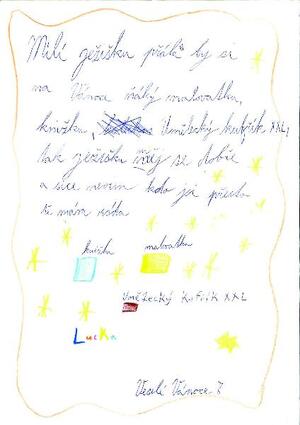 Milí ježíšku přála by si
na Vánoce ňáký malovatka,
knížku, Umělecký kufřík XXL,
tak ježíšku měj se dobře
a sice nevim kdo jsi přesto
tě mám ráda
knížka malovatka
Umělecký kufřík XXL
LucKa
Veselé Vánoce